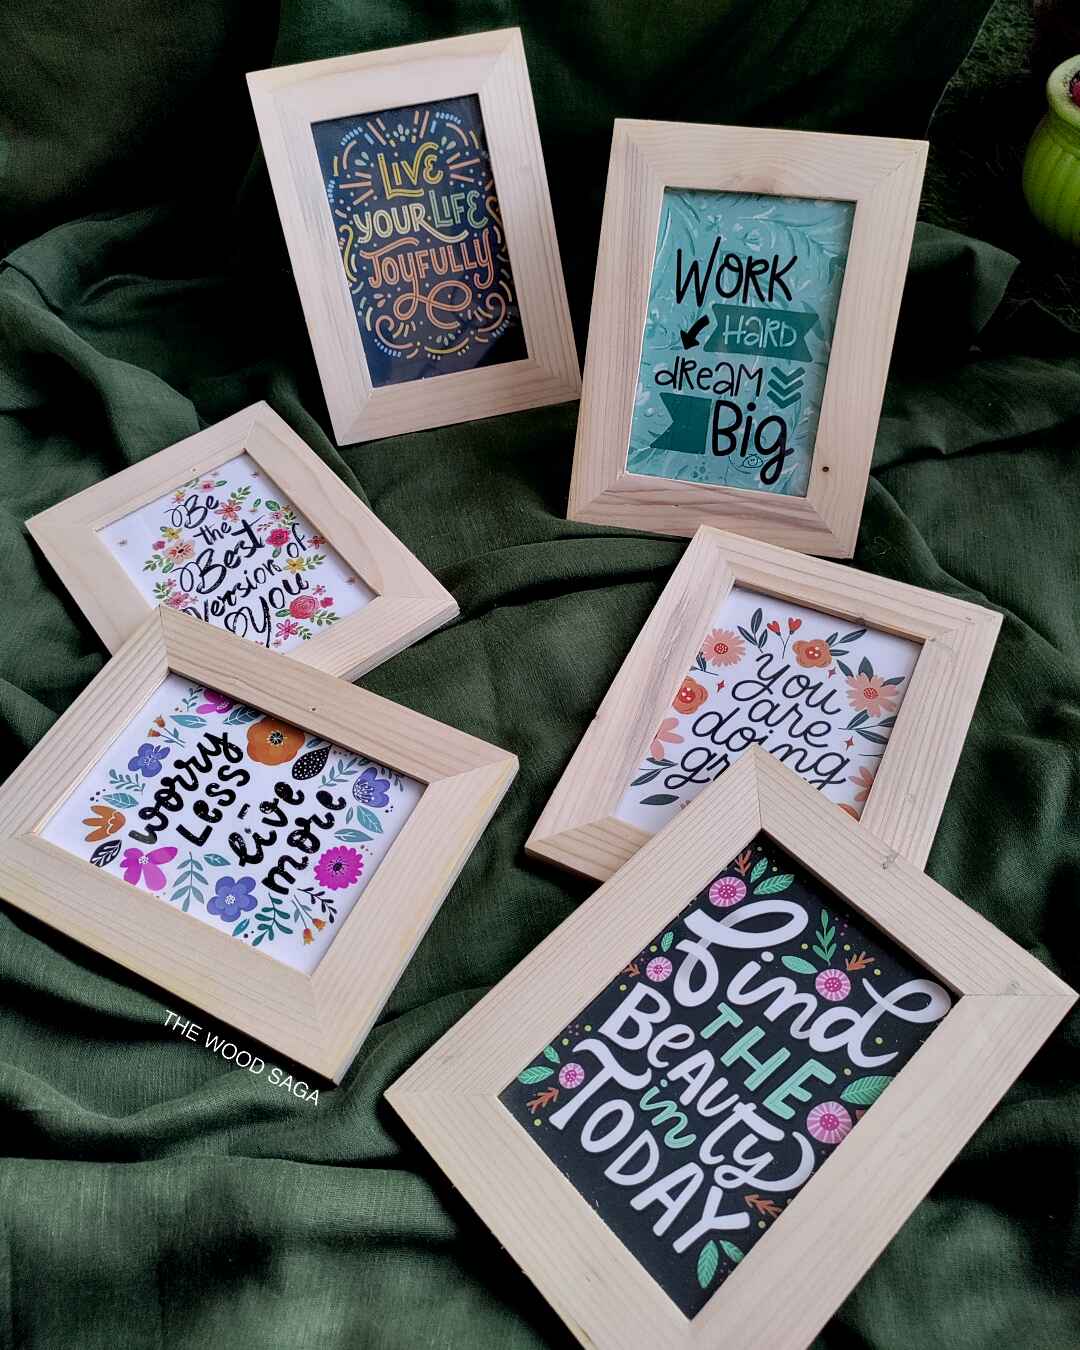 LIVE
YOUR LIFE
JOYFULLY
WORK
HARD
dream
Big
Be
the
Best
Version of
You
you
are
doing
worry
Less
live
more
find
THE
BEAUTY
in
TODAY
THE WOOD SAGA